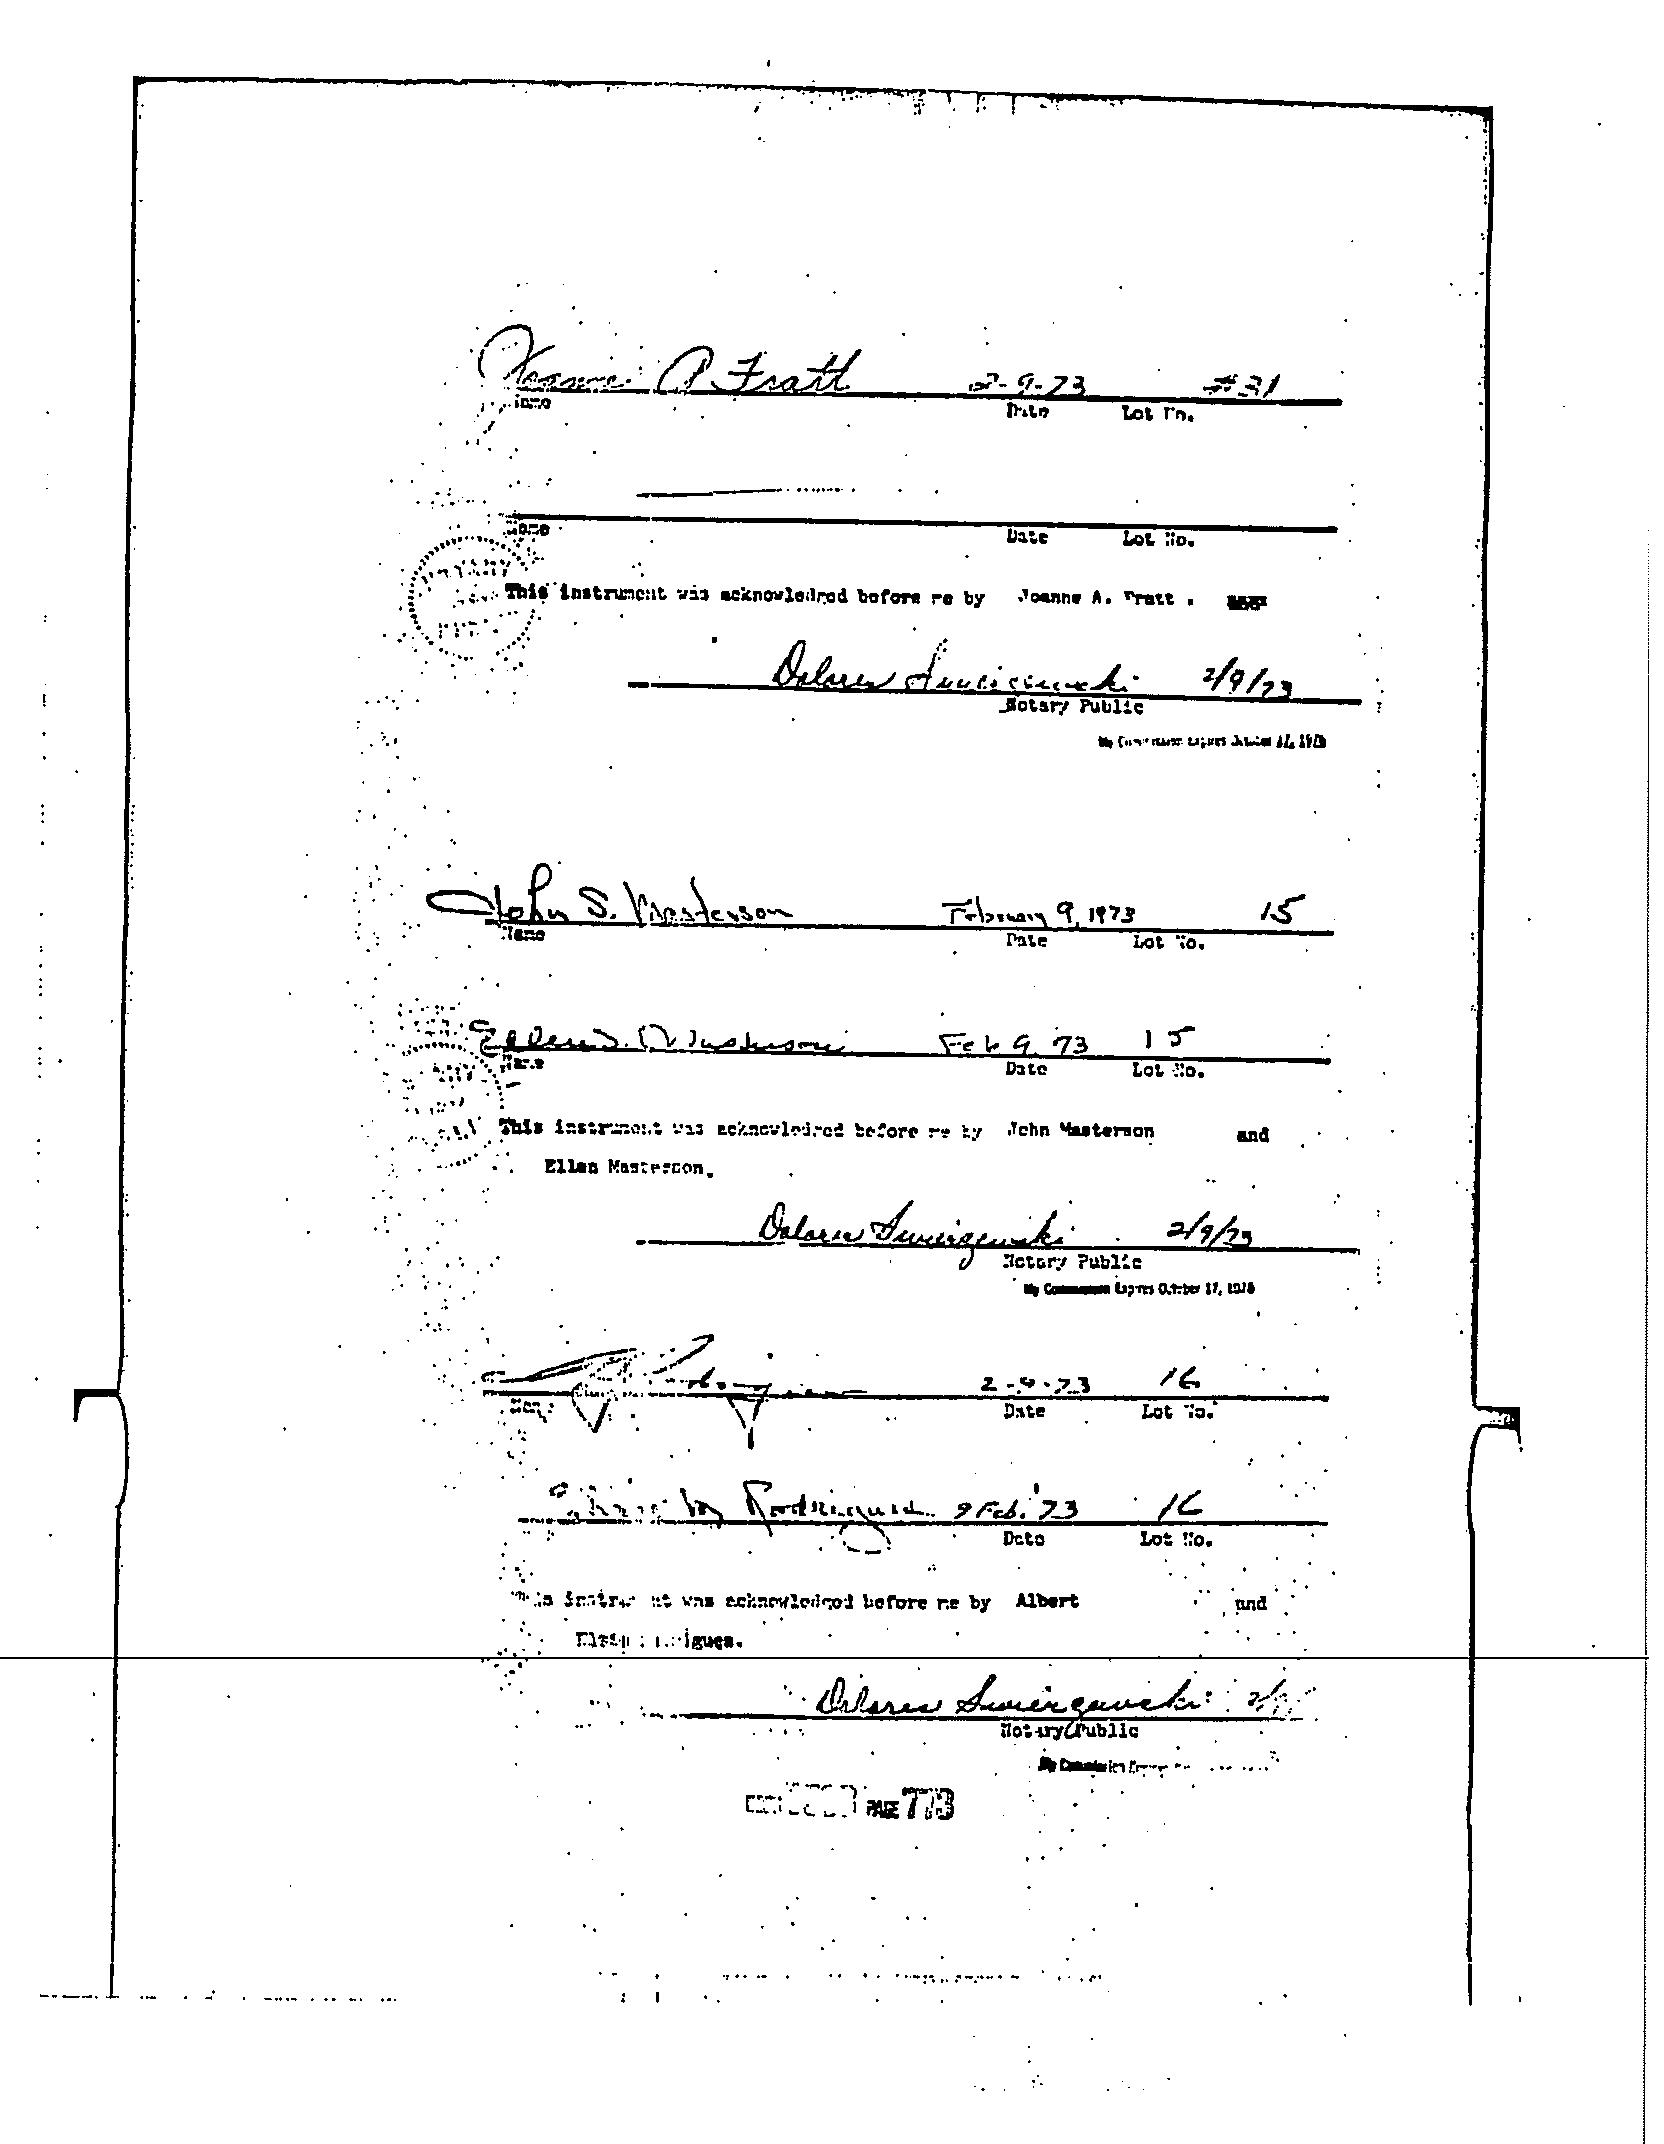 Joanne A Fratt 2-9-73 #31
Name Date Lot No.
Name Date Lot No.
This instrument was acknowledged before me by Joanne A. Fratt.
Dolores Swierzewski 2/9/73
Notary Public
My Commission Expires October 17, 1975
John S. Masterson February 9, 1973 15
Name Date Lot No.
Ellen Masterson Feb 9 73 15
Name Date Lot No.
This instrument was acknowledged before me by John Masterson and
Ellen Masterson.
Dolores Swierzewski 2/9/73
Notary Public
My Commission Expires October 17, 1975
2-9-73 16
Name Date Lot No.
M Rodrigues 9 Feb. '73 16
Date Lot No.
This instrument was acknowledged before me by Albert and
Rodrigues.
Dolores Swierzewski
Notary Public
My Commission
PAGE 773